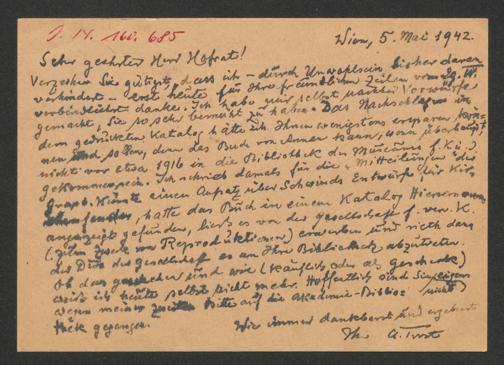 J. N. 160.685
Wien, 5. Mai 1942.
Sehr geehrter Herr Hofrat!
Verzeihen Sie gütigst, dass ich – durch Unwohlsein bisher daran
verhindert – erst heute für Ihre freundlichen Zeilen vom
verbindlichst danke. Ich habe mir selbst Vorwürfe
gemacht, Sie so sehr bemüht zu haben. Das Nachschlagen in
dem gedruckten Katalog hätte ich Ihnen wenigstens ersparen kön-
nen und sollen, denn das Buch von Annen kann, wenn überhaupt
nicht vor etwa 1916 in die Bibliothek des Museums f. K. u. J.
gekommen sein. Ich schrieb damals für die „Mitteilungen der
Graph. Künste einen Aufsatz über Schwinds Entwürfe für
hatte das Buch in einem Katalog Hiersemanns
angezeigt gefunden, liess es von der Gesellschaft f. verv. K.
(zum Zweck von Reproduktionen) erwerben und rieth dann
der Dion der Gesellschaft es an Ihre Bibliothek abzutreten.
Ob das geschehen und wie (käuflich oder als Geschenk)
weiss ich heute selbst nicht mehr. Hoffentlich sind Sie
wegen meiner zweiten Bitte auf die Akademie-Biblio= nicht
thek gegangen.
Wie immer dankbarst und ergebenst
Ihr A. Trost